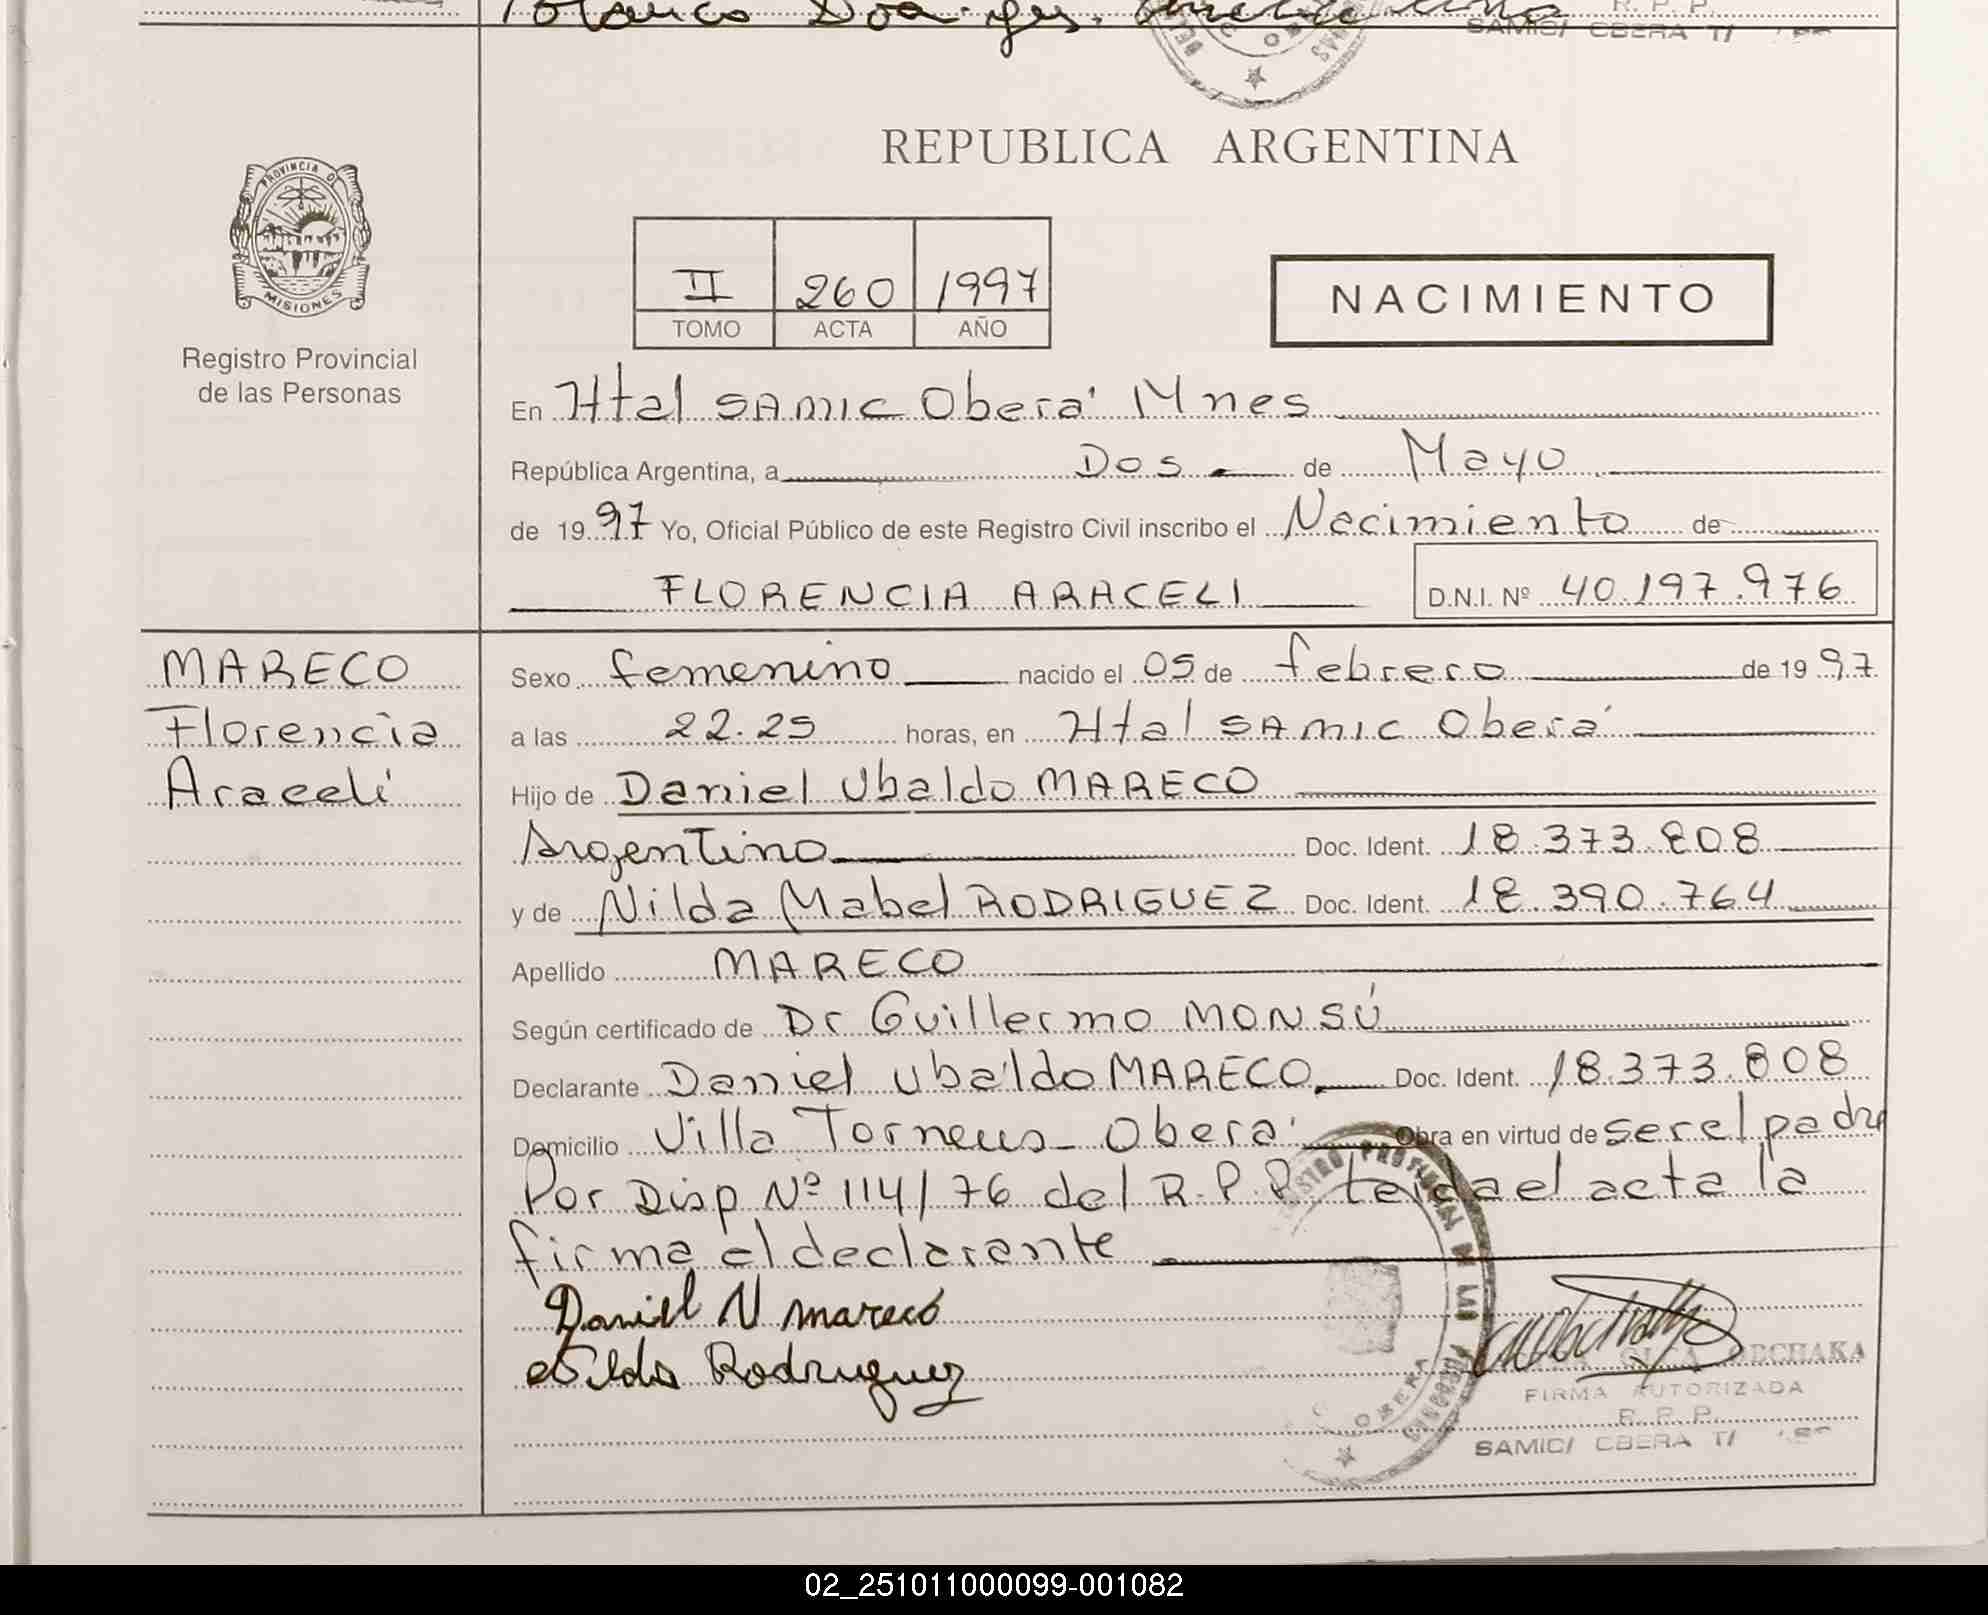 REPUBLICA ARGENTINA
PROVINCIA DE
MISIONES
Registro Provincial
de las Personas
II 260 1997
TOMO ACTA AÑO
NACIMIENTO
En Htal SAMIC Oberá Mnes
República Argentina, a Dos de Mayo
de 1997 Yo, Oficial Público de este Registro Civil inscribo el Nacimiento de
FLORENCIA ARACELI D.N.I. Nº 40.197.976
MARECO
Florencia
Araceli
Sexo femenino nacido el 05 de febrero de 1997
a las 22.25 horas, en Htal SAMIC Oberá
Hijo de Daniel Ubaldo MARECO
Argentino Doc. Ident. 18.373.808
y de Nilda Mabel RODRIGUEZ Doc. Ident. 18.390.764
Apellido MARECO
Según certificado de Dr Guillermo MONSÚ
Declarante Daniel Ubaldo MARECO Doc. Ident. 18.373.808
Domicilio Villa Torneus - Oberá Obra en virtud de ser el padre
Por Disp Nº 114/76 del R.P.P leida el acta la
firma el declarante
Daniel U mareco
Nilda Rodriguez
OBCHAKA
FIRMA AUTORIZADA
R.P.P.
SAMIC/ OBERA
02_251011000099-001082